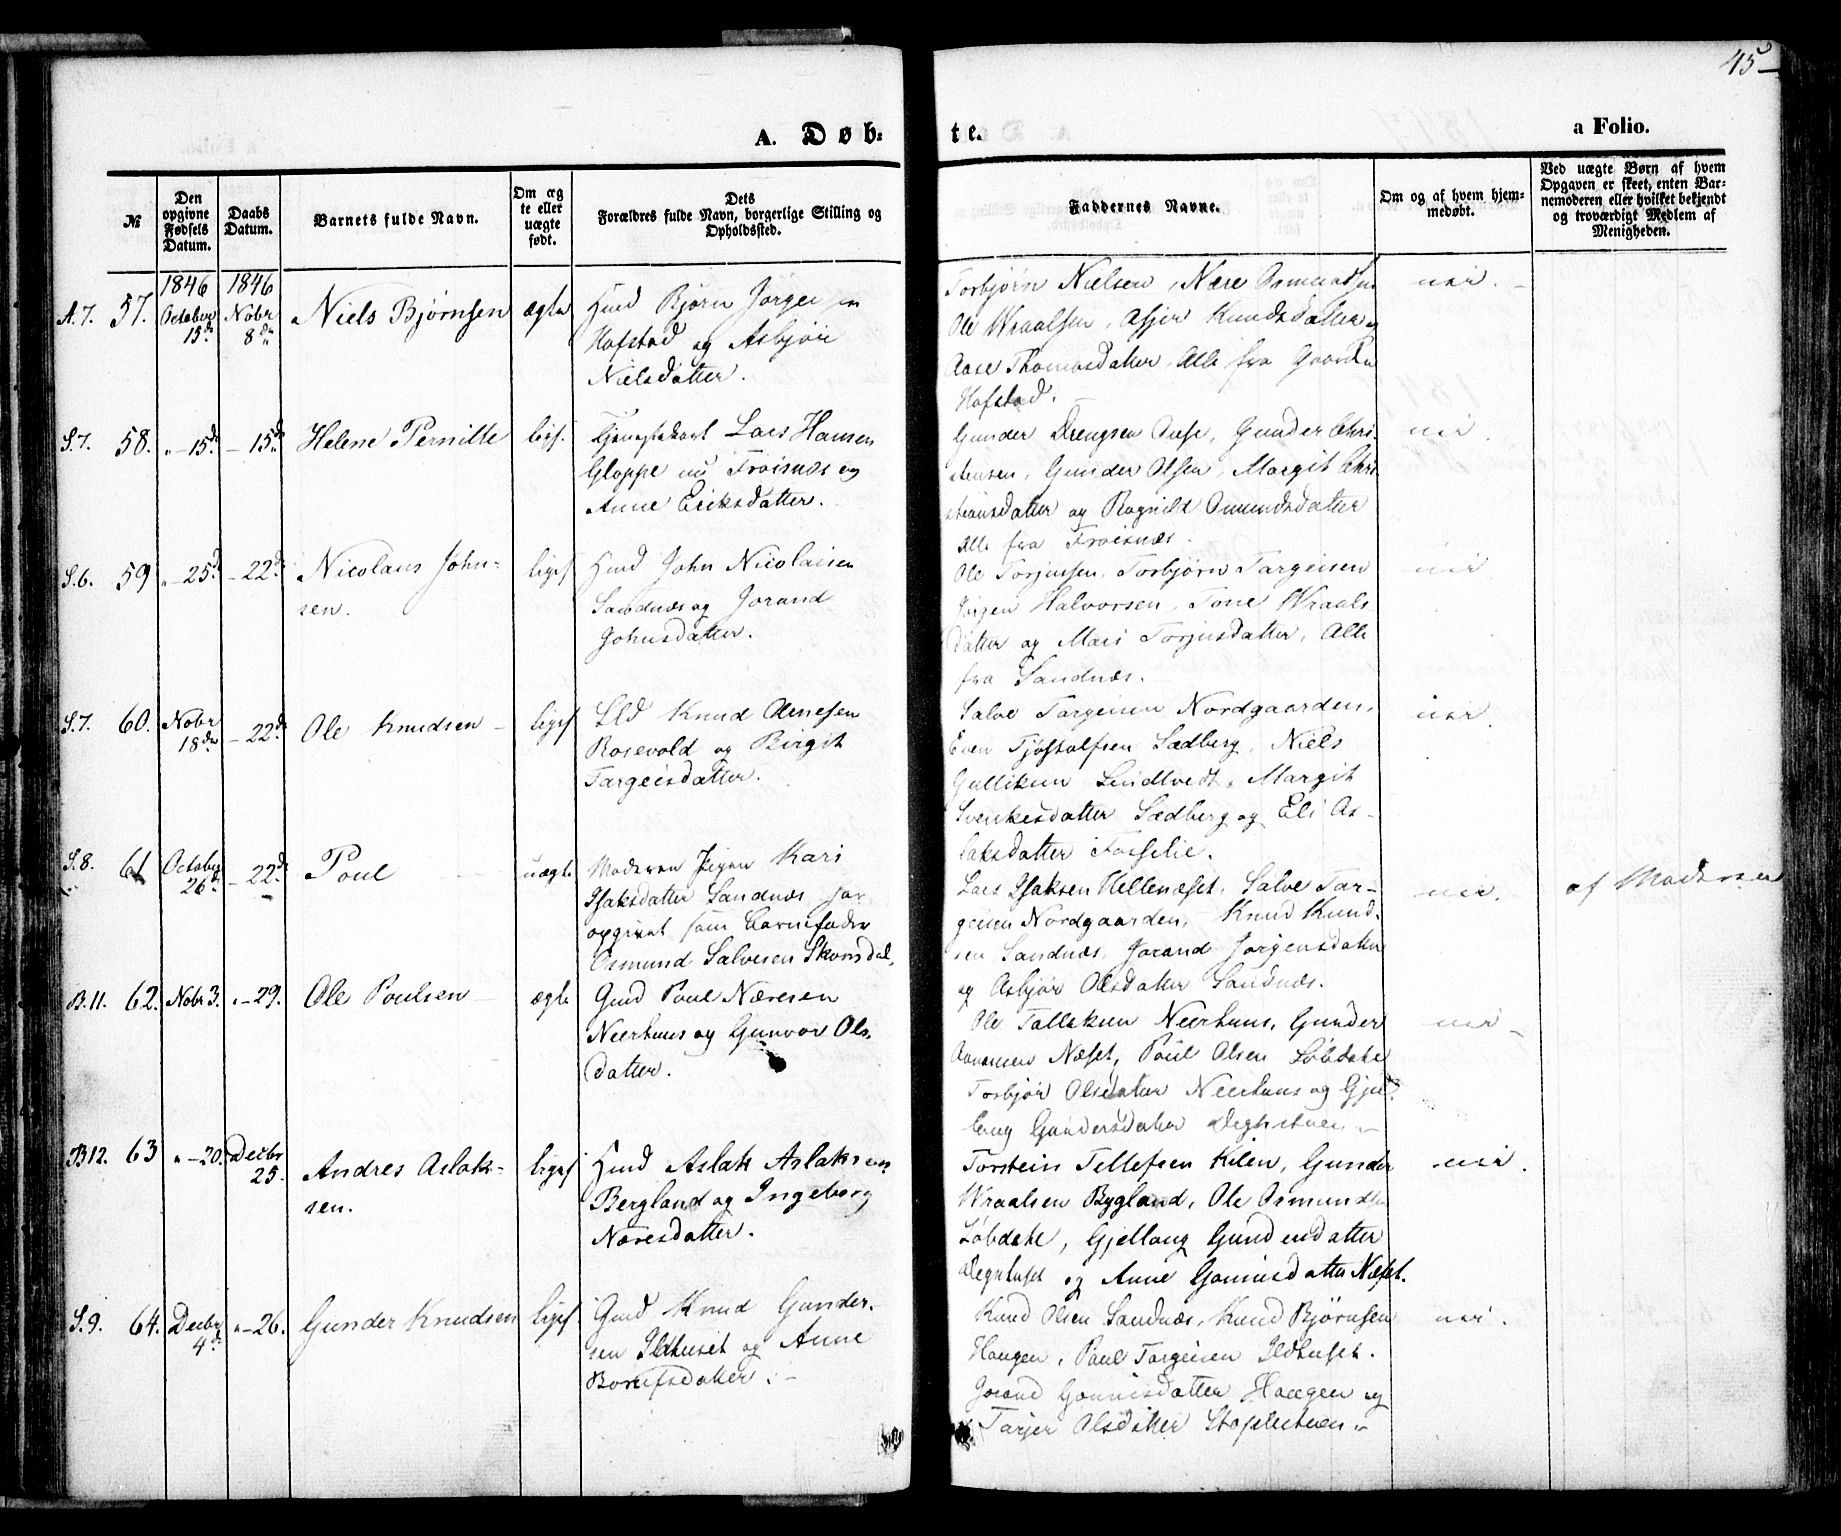 45
A. Døb-
te.
a Folio.
№
Den opgivne Fødsels Datum.
Daabs Datum.
Barnets fulde Navn.
Om ægte eller uægte født.
Dets Forældres fulde Navn, borgerlige Stilling og Opholdssted.
Faddernes Navne.
Om og af hvem hjemmedøbt.
Ved uægte Børn af hvem Opgaven er skeet, enten Barnemoderen eller hvilket bekjendt og troværdigt Medlem af Menigheden.
A.7. 57. 1846 October 15de 1846 Nobr 8de Niels Bjørnsen ægte
Bjørn
Hofstad og Asbjør
Nielsdatter.
Torbjørn Nielsen, Nære Osmundsen
Ole Wraalsen, Asjer Knudsdatter og
Aase Thomasdatter, Alle fra Gaarden
Hofstad.
S.7. 58. " – 15de – 15de Helene Pernille ligs.
Lars Hansen
Gloppe nu Froisnæs og
Anne Eriksdatter.
Gunder Drengsen Ouse, Gunder Chri-
stensen, Gunder Olsen, Margit Chri
stiansdatter og Ragnild Omundsdatter
Alle fra Froisnæs.
S.6. 59 " – 25d – 22de Nicolaus John-
sen. ligs
John Nicolaisen
Sandnæs og Jorand
Johnsdatter.
Ole Torjusen, Torbjørn Targeisen
Jørgen Halvorsen, Tone Wraals
datter og Mari Torjusdatter, Alle
fra Sandnæs.
S.7. 60. Nobr 18de – 22de Ole Knudsen – ligs
Knud Arnesen
Rosevold og Birgit
Targeisdatter.
Salve Targeisen Nordgaarden,
Even Tjøstolfsen Sædberg, Niels
Gulliksen Lindtvedt, Margit
Svenkesdatter Sædberg og Eli As-
laksdatter Fosselie.
S.8. 61 October 26de – 22de Poul uægte
Moderen Pigen Kari
Isaksdatter Sandnæs har
opgivet som Barnefader
Osmund Salvesen Skomdal,
Lars Isaksen Helleneset, Salve Tar-
geisen Nordgaarden, Knud Knud-
sen Sandnæs, Jorand Jørgensdatter
og Asbjør Olsdatter Sandnæs.
af Moderen
B.11. 62. Nobr 3. " – 29. Ole Poulsen – ægte
Gmd Poul Næresen
Neerhuus og Gunvor Ols-
datter.
Ole Tallaksen Neerhuus, Gunder
Aanensen Næset, Poul Olsen Løbdahl
Torbjør Olsdatter Neerhuus og Gjel
laug Gundersdatter
B12. 63 " – 20. Decbr 25. Andres Aslak-
sen. ligs
Aslak Aslaksen
Bergland og Ingeborg
Næresdatter.
Torstein Tellefsen Kilen, Gunder
Wraalsen Bygland, Ole Osmundsen
Løbdahl, Gjellaug Gundersdatter
og Anne Gunnisdatter Næset.
S.9. 64. Decbr 4de " – 26. Gunder Knudsen ligs
Gmd Knud Gunder-
sen Ildhuset og Anne
Knud Olsen Sandnæs, Knud Bjørnsen
Haugen, Poul Targeisen Ildhuset.
Jorand Gunnisdatter Haugen og
Tarjer Olsdatter